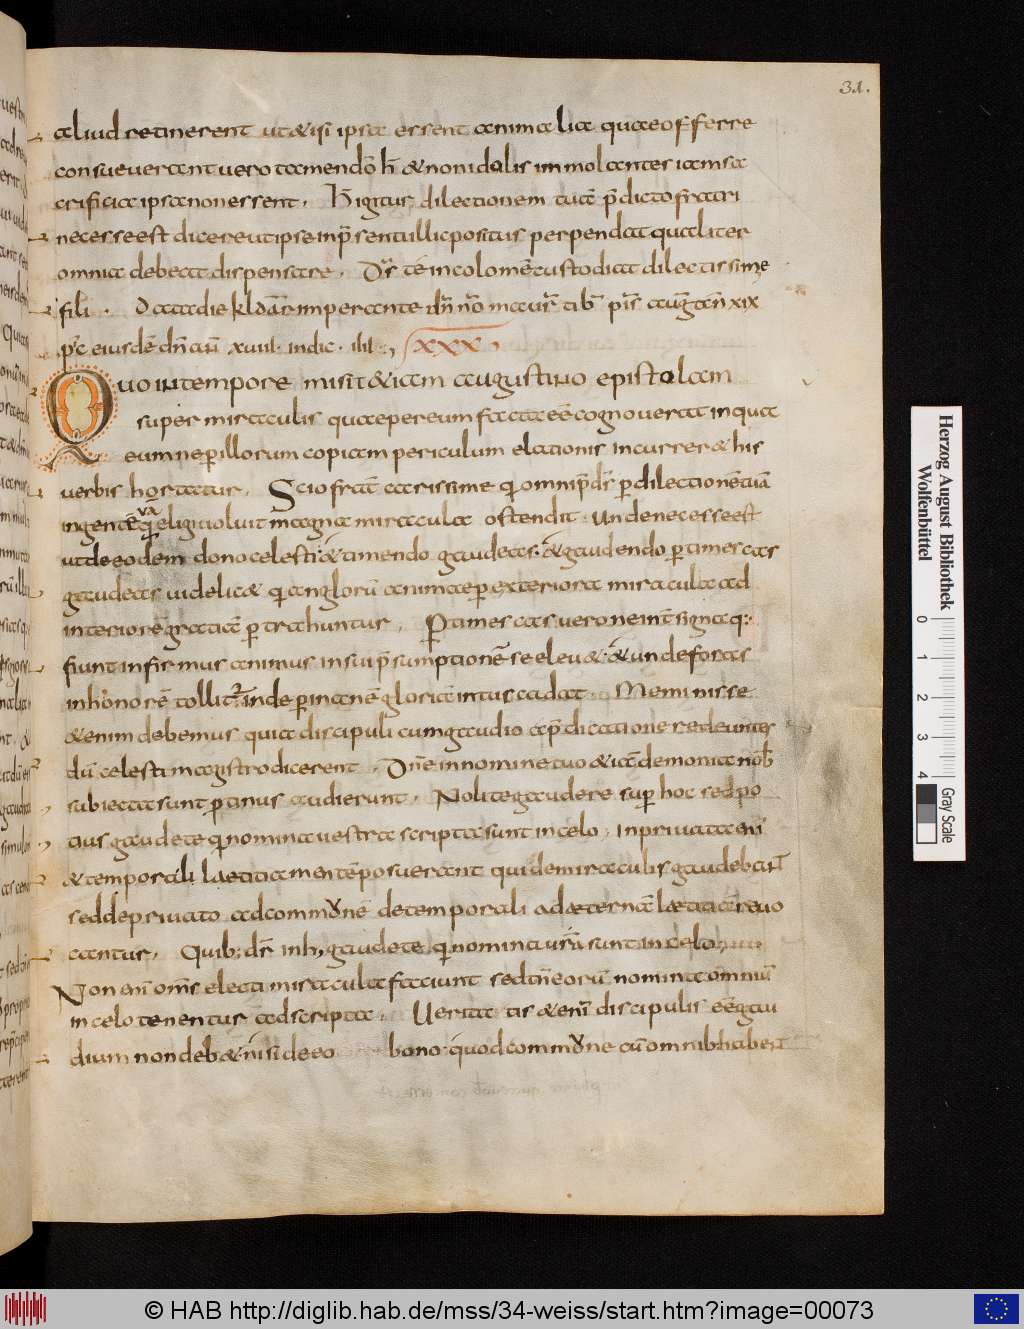 31.
aliud retinerent ut &isi ipsa essent animalia quae offerre
consueverant vero tamen dō h̄ & non idolis immolantes iam sa
crificia ipsa non essent. H̄ igitur dilectionem tuā p̄dicto fratri
necesse est dicere ut ipse inp̄senti illic positus perpendat qualiter
omnia debeat dispensare. Ds̄ te incolomē custodiat dilectissime
fili. Data die kl
p̄c eiusdē dn̄i añ xviiii. indic. iiii. XXX
Quo in tempore misit & iam augustino epistolam
super miraculis quae per eum facta eē cognoverat in qua
eum ne p illorum copiam periculum elationis incurrer& his
verbis hortatur. Scio frat̄ carissime q̄ omnip̄ds̄ p dilectionē tuā
ingentē q̄ eligi voluit magna miracula ostendit. Unde necesse est
ut de eodem dono celesti & timendo gaudeas. & gaudendo ptimescas
gaudeas videlic& q̄ anglorū animae p exteriora miracula ad
interiorē gratiā ptrahuntur. Ptimescas vero ne int̄ signa q:
fiunt infirmus animus in sui p̄sumptionē se elev&. & unde foras
in honorē tollit inde p inanē gloriā intus cadat. Meminisse
&enim debemus quia discipuli cum gaudio a p̄dicatione redeuntes
dū celesti magistro dicerent. Dn̄e in nomine tuo & iā demonia nob̄
subiecta sunt ptinus audierunt. Nolite gaudere sup hoc sed po
tius gaudete q̄ nomina vestra scripta sunt in celo. In privata
& temporali laetitia mentē posuerant qui de miraculis gaudebant
sed de privato ad commōnē de temporali ad aeternā laetitiā revo
cantur. Quib: dr̄ inh gaudete q̄ nomina vr̄a sunt in celo
Non om̄s electi miracula faciunt sed tn̄ eorū nomina omniū
in celo tenentur adscripta. Verita tis &enī discipulis eē gau
dium non deb& nisi de eo bono quod commōne cū omnib: habent
Herzog August Bibliothek
Wolfenbüttel
0 1 2 3 4
Gray Scale
© HAB http://diglib.hab.de/mss/34-weiss/start.htm?image=00073